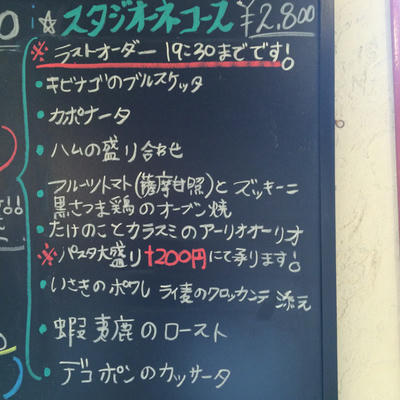 ☆スタジオーネコース ¥2,800
※ラストオーダー 19:30までです!
・キビナゴのブルスケッタ
・カポナータ
・ハムの盛り合わせ
・フルーツトマト(薩摩甘照)とズッキーニ
黒さつま鶏のオーブン焼
・たけのことカラスミのアーリオオーリオ
※パスタ大盛り+200円にて承ります!
・いさきのポワレ ライ麦のクロッカンテ 添え
・蝦夷鹿のロースト
・デコポンのカッサータ